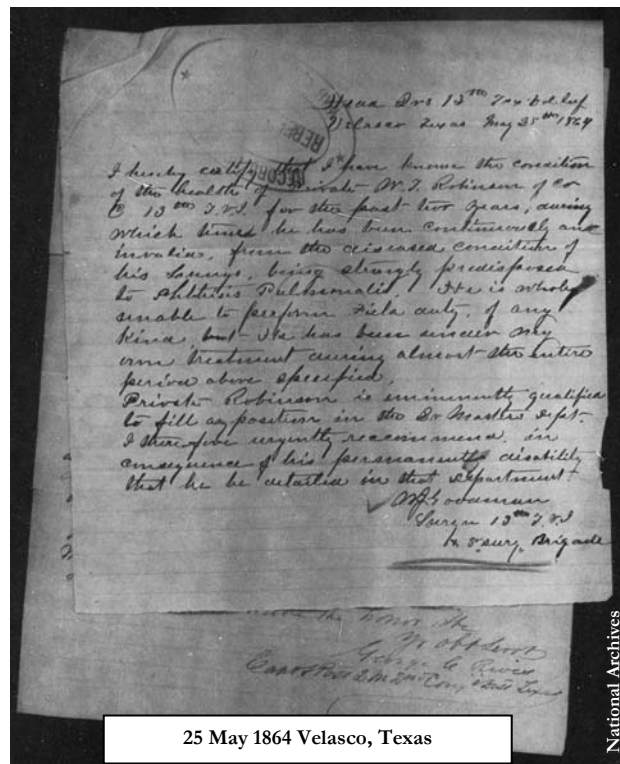 Head Qrs 13th Tex Vol Inf
Velasco Texas May 25th 1864
RECORD
REBEL
I hereby certify that I have known the condition
of the health of Private W. T. Robinson of Co
C 13th T.V.I. for the past two years, during
which time he has been continuously an
invalid, from the diseased condition of
his Lungs, being strongly predisposed
to Phthisis Pulmonalis. He is wholy
unable to perform Field duty, of any
Kind, but He has been under my
own treatment during almost the entire
period above specified.
Private Robinson is eminently qualified
to fill a position in the Qr Masters Dept.
I therefore urgently reccommend, in
consequence of his permanently disability
that he be detailed in that Department
Goodman
Surgn 13th T.V.I
Surg. Brigade
the honor
Yr obt Servt
George
Capt Texas
National Archives
25 May 1864 Velasco, Texas